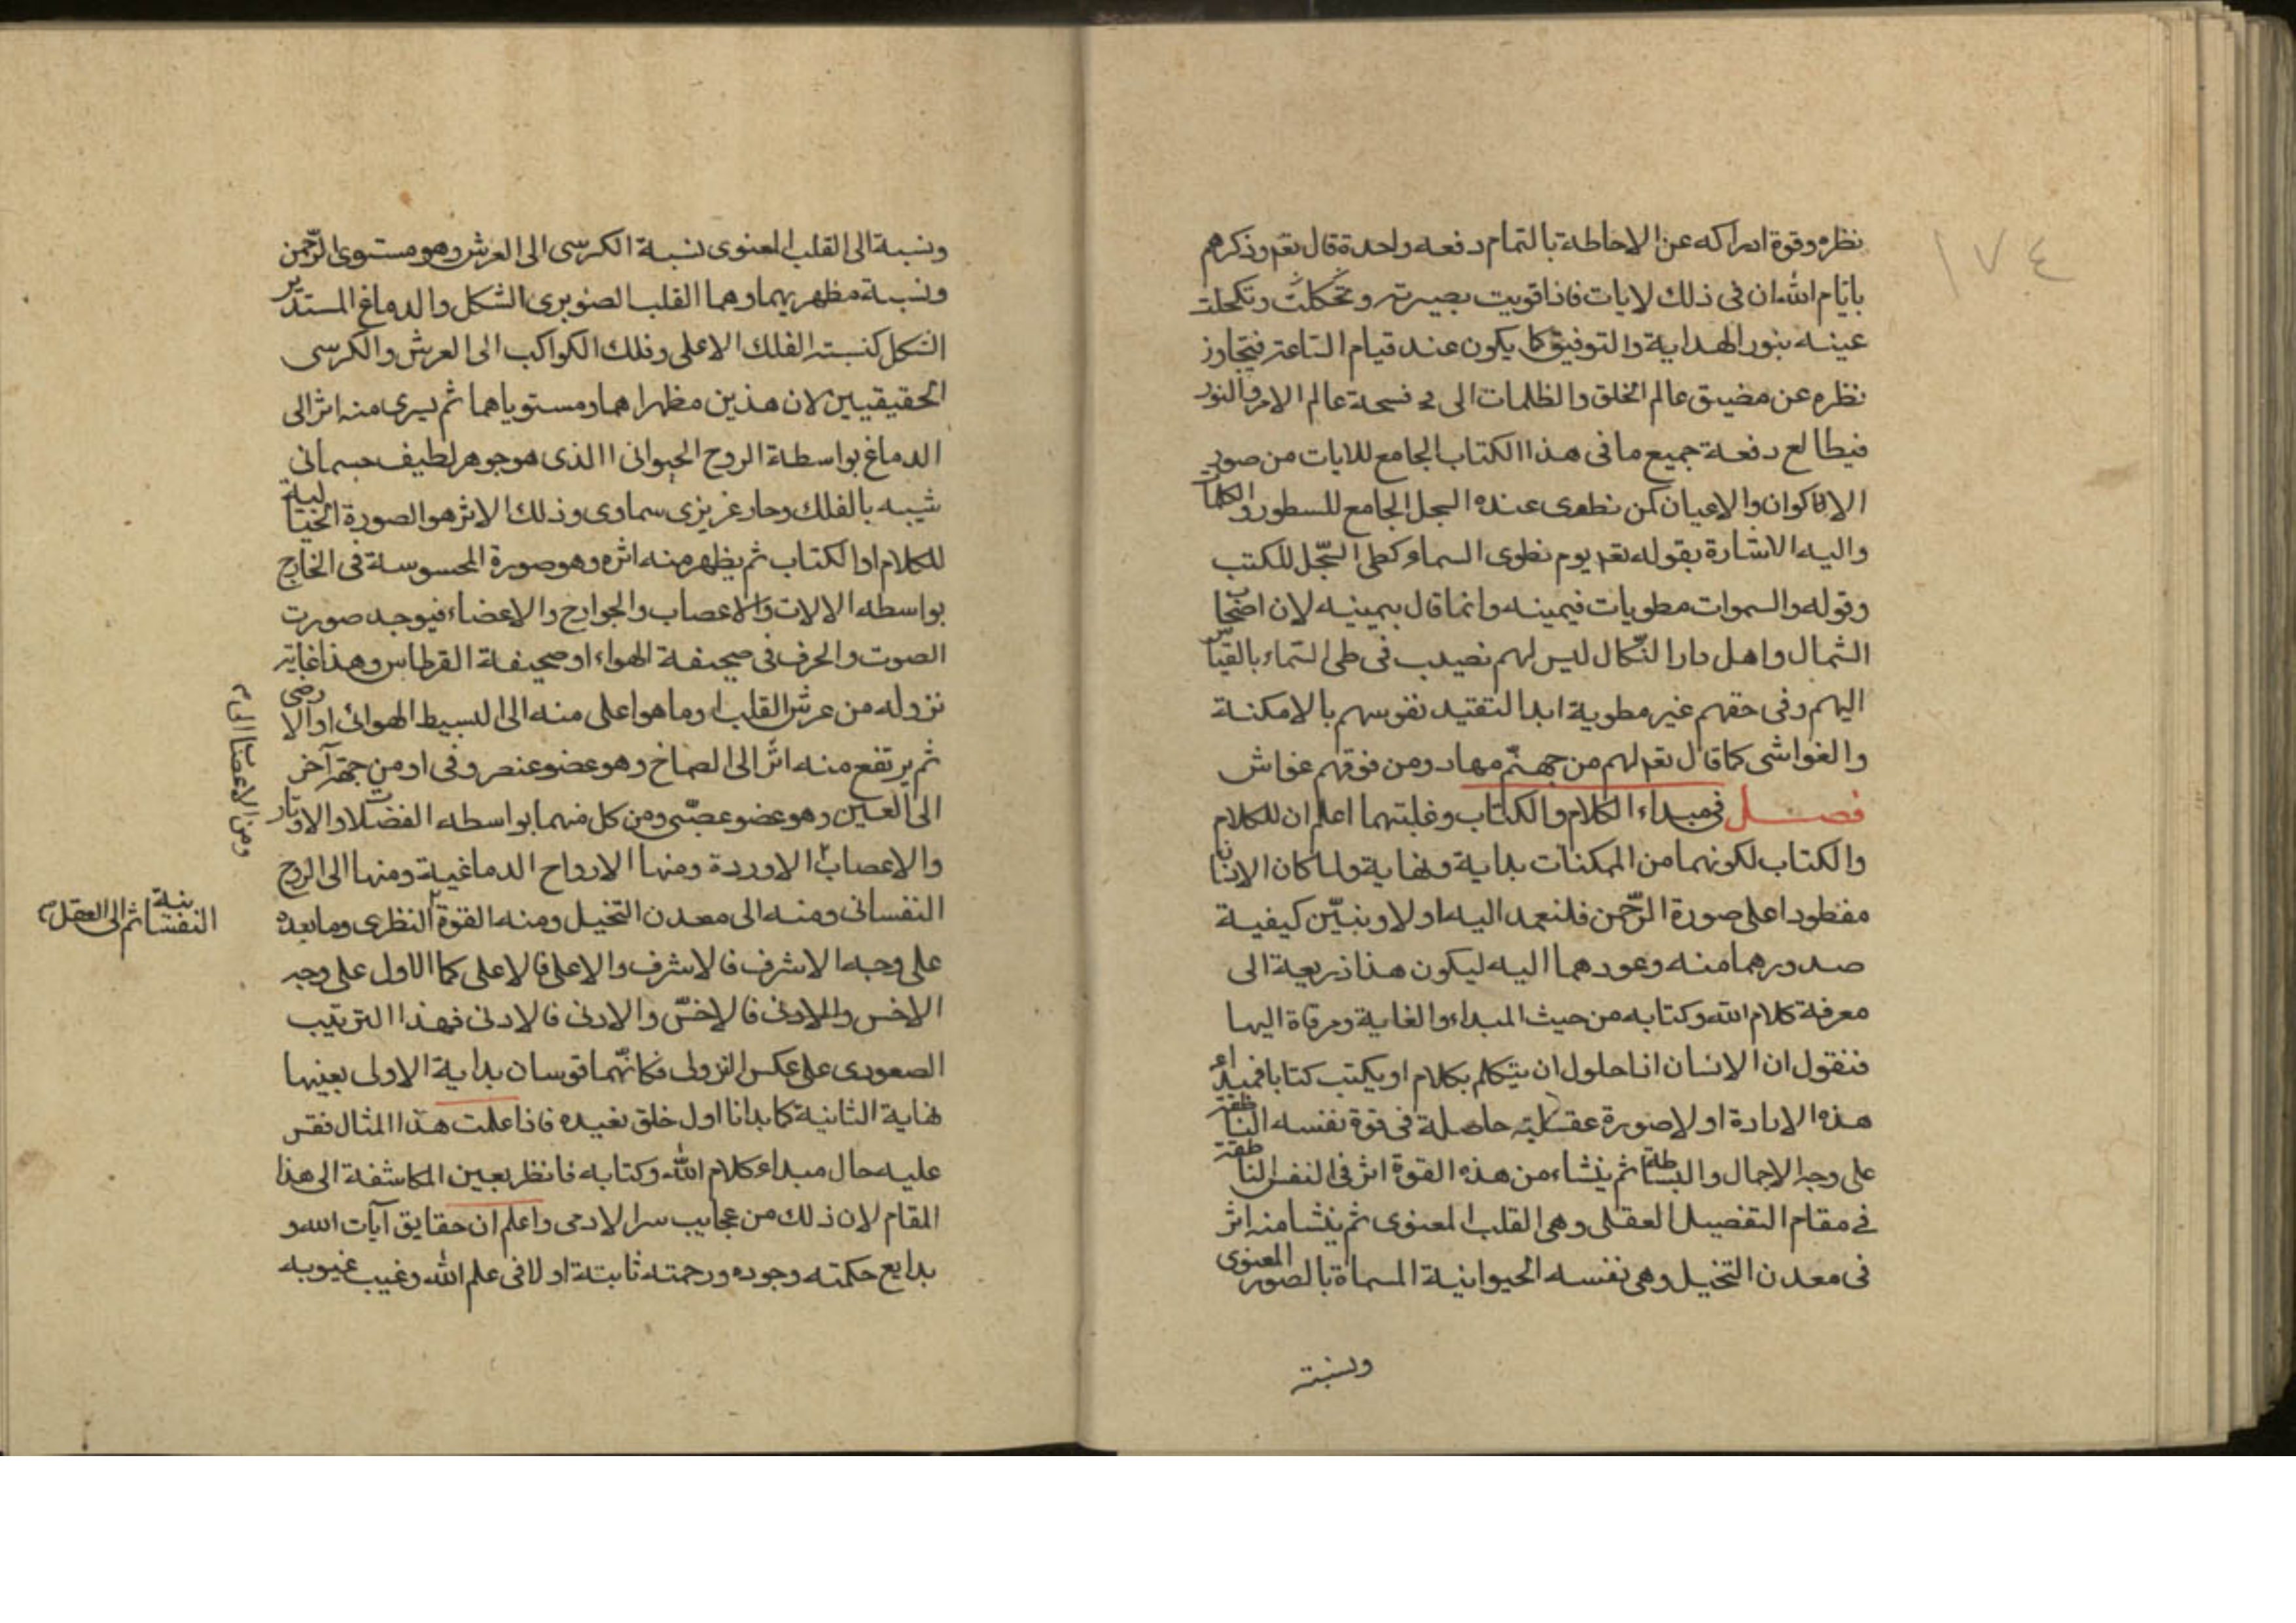 ١٧٤
نظره وقوة ادراكه عن الاحاطة بالتمام دفعه واحدة قال تعم وذكرهم
بايّام اللّه ان فى ذلك لايات فاذا قويت بصيرته وتكحلت
عينه بنور الهداية والتوفيق كما يكون عند قيام الساعة فيتجاوز
نظره عن مضيق عالم الخلق والظلمات الى فسحة عالم الامر والنور
فيطالع دفعة جميع ما فى هذا الكتاب الجامع للايات من صور
الاكوان والاعيان كمن نطوى عنده السجل الجامع للسطور والكلمات
واليه الاشارة بقوله تعم يوم نطوى السماء كطى السّجل للكتب
وقوله والسموات مطويات فيمينه وانما قال بيمينه لان اضحاب
الشمال واهل دار النّكال ليس لهم نصيب فى طى السماء بالقياس
اليهم وفى حقهم غير مطوية ابدا لتقتيد نفوسهم بالامكنة
والغواشى كما قال تعم لهم من جهنّم مهاد ومن فوقهم غواش
فصل فى مبداء الكلام والكتاب وغايتهما اعلم ان للكلام
والكتاب لكونهما من الممكنات بداية ونهاية ولما كان الانسان
مفطورا على صورة الرّحمن فلنعمد اليه اولا ونبيّن كيفية
صدورهما منه وعودهما اليه ليكون هذا ذريعة الى
معرفة كلام اللّه وكتابه من حيث المبداء والغاية ومرقاة اليها
فنقول ان الانسان اذا حاول ان يتكلم بكلام او يكتب كتابا فمبداء
هذه الارادة اولا صورة عقلية حاصلة فى قوة نفسه الناطقة
على وجه الاجمال والبساطة ثم ينشاء من هذه القوة اثر فى النفس الناطقة
فى مقام التفصيل العقلى وهى القلب المعنوى ثم ينشا منه اثر
فى معدن التخيل وهى نفسه الحيوانية المسماة بالصور المعنوى
ونسبته
ونسبة الى القلب المعنوى نسبة الكرسى الى العرش وهو مستوى الرّحمن
ونسبة مظهريهما وهما القلب الصنوبرى الشكل والدماغ المستدير
الشكل كنسبته الفلك الاعلى وفلك الكواكب الى العرش والكرسى
الحقيقيين لان هذين مظهراهما ومستوياهما ثم يسرى منه اثر الى
الدماغ بواسطة الروح الحيوانى الذى هو جوهر لطيف جسمانى
شبيه بالفلك وحار غريزى سماوى وذلك الاثر هو الصورة الخيالية
للكلام او الكتاب ثم يظهر منه اثره وهو صورة المحسوسة فى الخارج
بواسطه الالات والاعصاب والجوارح والاعضاء فيوجد صورت
الصوت والحرف فى صحيفة الهواء او صحيفة القرطاس وهذا غاية
نزوله من عرش القلب وما هو اعلى منه الى البسيط الهوائى او الارضى
ثم يرتفع منه اثر الى الصماخ وهو عضو عنصروفى او من جهة آخر
الى العين وهو عضو عصبّى ومن كل منهما بواسطه العضلات والاوتار
والاعصاب الاوردة ومنها الارواح الدماغية ومنها الى الروح
النفسانى ومنه الى معدن التخيل ومنه القوة النظرى وما بعده
على وجه الاشرف فالاشرف والاعلى فالاعلى كما الاول على وجه
الاخس والادنى فالاخسّ والادنى فالادنى فهذا الترتيب
الصعودى على عكس النزولى فكانّهما قوسان بداية الاولى بعينها
نهاية الثانية كما بدانا اول خلق نعيده فاذا علمت هذا المثال فقس
عليه حال مبداء كلام اللّه وكتابه فانظر بعين المكاشفة الى هذا
المقام لان ذلك من عجايب سرا لادمى واعلم ان حقايق آيات اللّه و
بدايع حكمته وجوده ورحمته ثابتة اولا فى علم اللّه وغيب غيوبه
ومن الاعصاب الى م
النفسانية ثم الى العقل